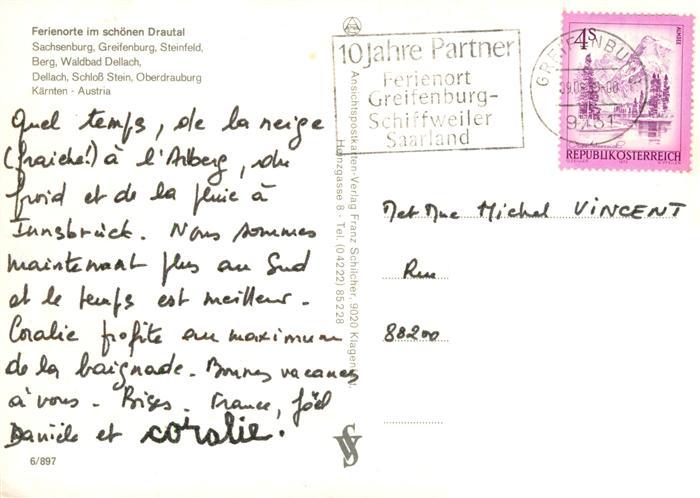 Ferienorte im schönen Drautal
Sachsenburg, Greifenburg, Steinfeld,
Berg, Waldbad Dellach,
Dellach, Schloß Stein, Oberdrauburg
Kärnten · Austria
Quel temps, de la neige
(fraiche!) à l'Arlberg, du
froid et de la pluie à
Innsbrück. Nous sommes
maintenant plus au Sud
et le temps est meilleur.
Coralie profite au maximum
de la baignade. Bonnes vacances
à vous. Bises. France, Joël
Danièle et coralie.
6/897
Ansichtspostkarten-Verlag Franz Schilcher, 9020 Klagenfurt
Heinzgasse 8 - Tel. (04222) 85228
10 Jahre Partner
Ferienort
Greifenburg-
Schiffweiler
Saarland
GREIFENBURG
9761
4S
ALMSEE
REPUBLIK ÖSTERREICH
M et Mme Michel VINCENT
Rue
88200